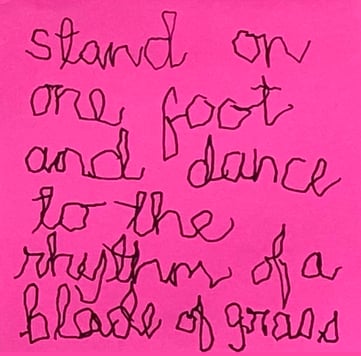 stand on
one foot
and dance
to the
rhythm of a
blade of grass